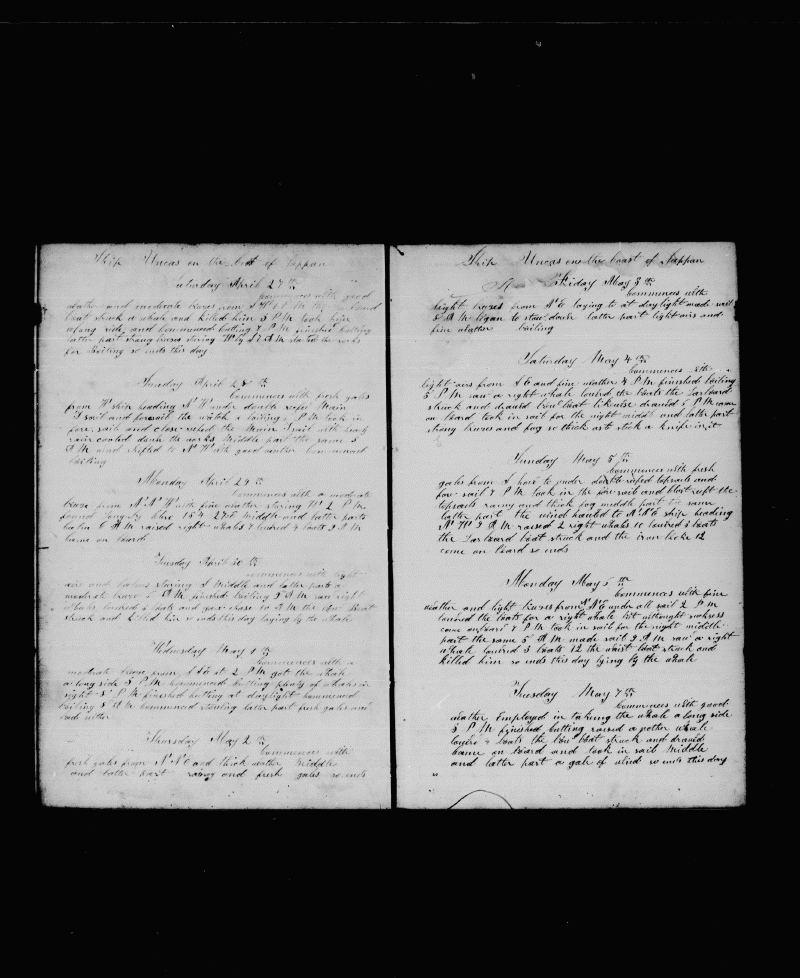 Ship Uncas on the Coast of Jappan
Saturday April 27th
Commences with good
weather and moderate breezes from
boat struck a whale and killed him 5 P M took him
along side and commenced cutting 7 P M finished cutting
latter part strong breezes steering W by S A M started the works
for boiling so ends this day
Sunday April 28th
Commences with fresh gales
from W ship heading N W under double reefs Main
T sail and foresail the watch a boiling P M took in
fore sail and close reefed the Main T sail with heavy
rain cooled down the works Middle part the same 5
A M wind shifted to N W with good weather commenced
boiling
Monday April 29th
Commences with a moderate
breeze from N N W with fine weather staring W 2 P M
Middle and latter parts
calm 6 A M raised right whales lowered 4 boats 9 A M
came on board
Tuesday April 30th
Commences with light
airs and staring S Middle and latter parts a
moderate breeze 5 A M finished boiling 9 A M saw right
whales lowered 3 boats and gave chase 10 A M the Bow Boat
struck and killed him so ends this day laying by the whale
Wednesday May 1th
Commences with a
moderate breeze from S S E at 2 P M got the whale
a long side 3 P M commenced cutting plenty of whales in
sight 8 P M finished cutting at daylight commenced
boiling 8 A M commenced stowing latter part fresh gales and
Thursday May 2th
Commences with
fresh gales from N N E and thick weather Middle
and latter part rainy and fresh gales so ends
Ship Uncas on the Coast of Jappan
Friday May 3th
Commences with
light breezes from N E laying to at daylight made sail
8 A M began to stow down latter part light airs and
fine weather boiling
Saturday May 4th
Commences with
light airs from S E and fine weather 4 P M finished boiling
5 P M saw a right whale lowered the boats the Larboard
struck and drawed bow boat likewise drawed 8 P M came
on board took in sail for the night middle and latter part
strong breezes and fog so thick as to stick a knife in it
Sunday May 5th
Commences with fresh
gales from S hove to under double reefed topsails and
fore sail 7 P M took in the fore sail and close reeft the
topsails rainy and thick fog middle part the same
latter part the wind hauled to N N E ship heading
N W 9 A M raised 2 right whales 10 lowered 3 boats
the Larboard boat struck and the iron broke 12
come on board so ends
Monday May 6th
Commences with fine
weather and light breezes from N N E under all sail 2 P M
lowered the boats for a right whale but without suckses
came onboard 7 P M took in sail for the night middle
part the same 5 A M made sail 9 A M saw a right
whale lowered 3 boats 12 the waist boat struck and
killed him so ends this day lying by the whale
Tuesday May 7th
Commences with good
weather employed in taking the whale a long side
5 P M finished cutting raised a nother whale
lowered 4 boats the bow boat struck and drawed
came on board and took in sail Middle
and latter part a gale of wind so ends this day